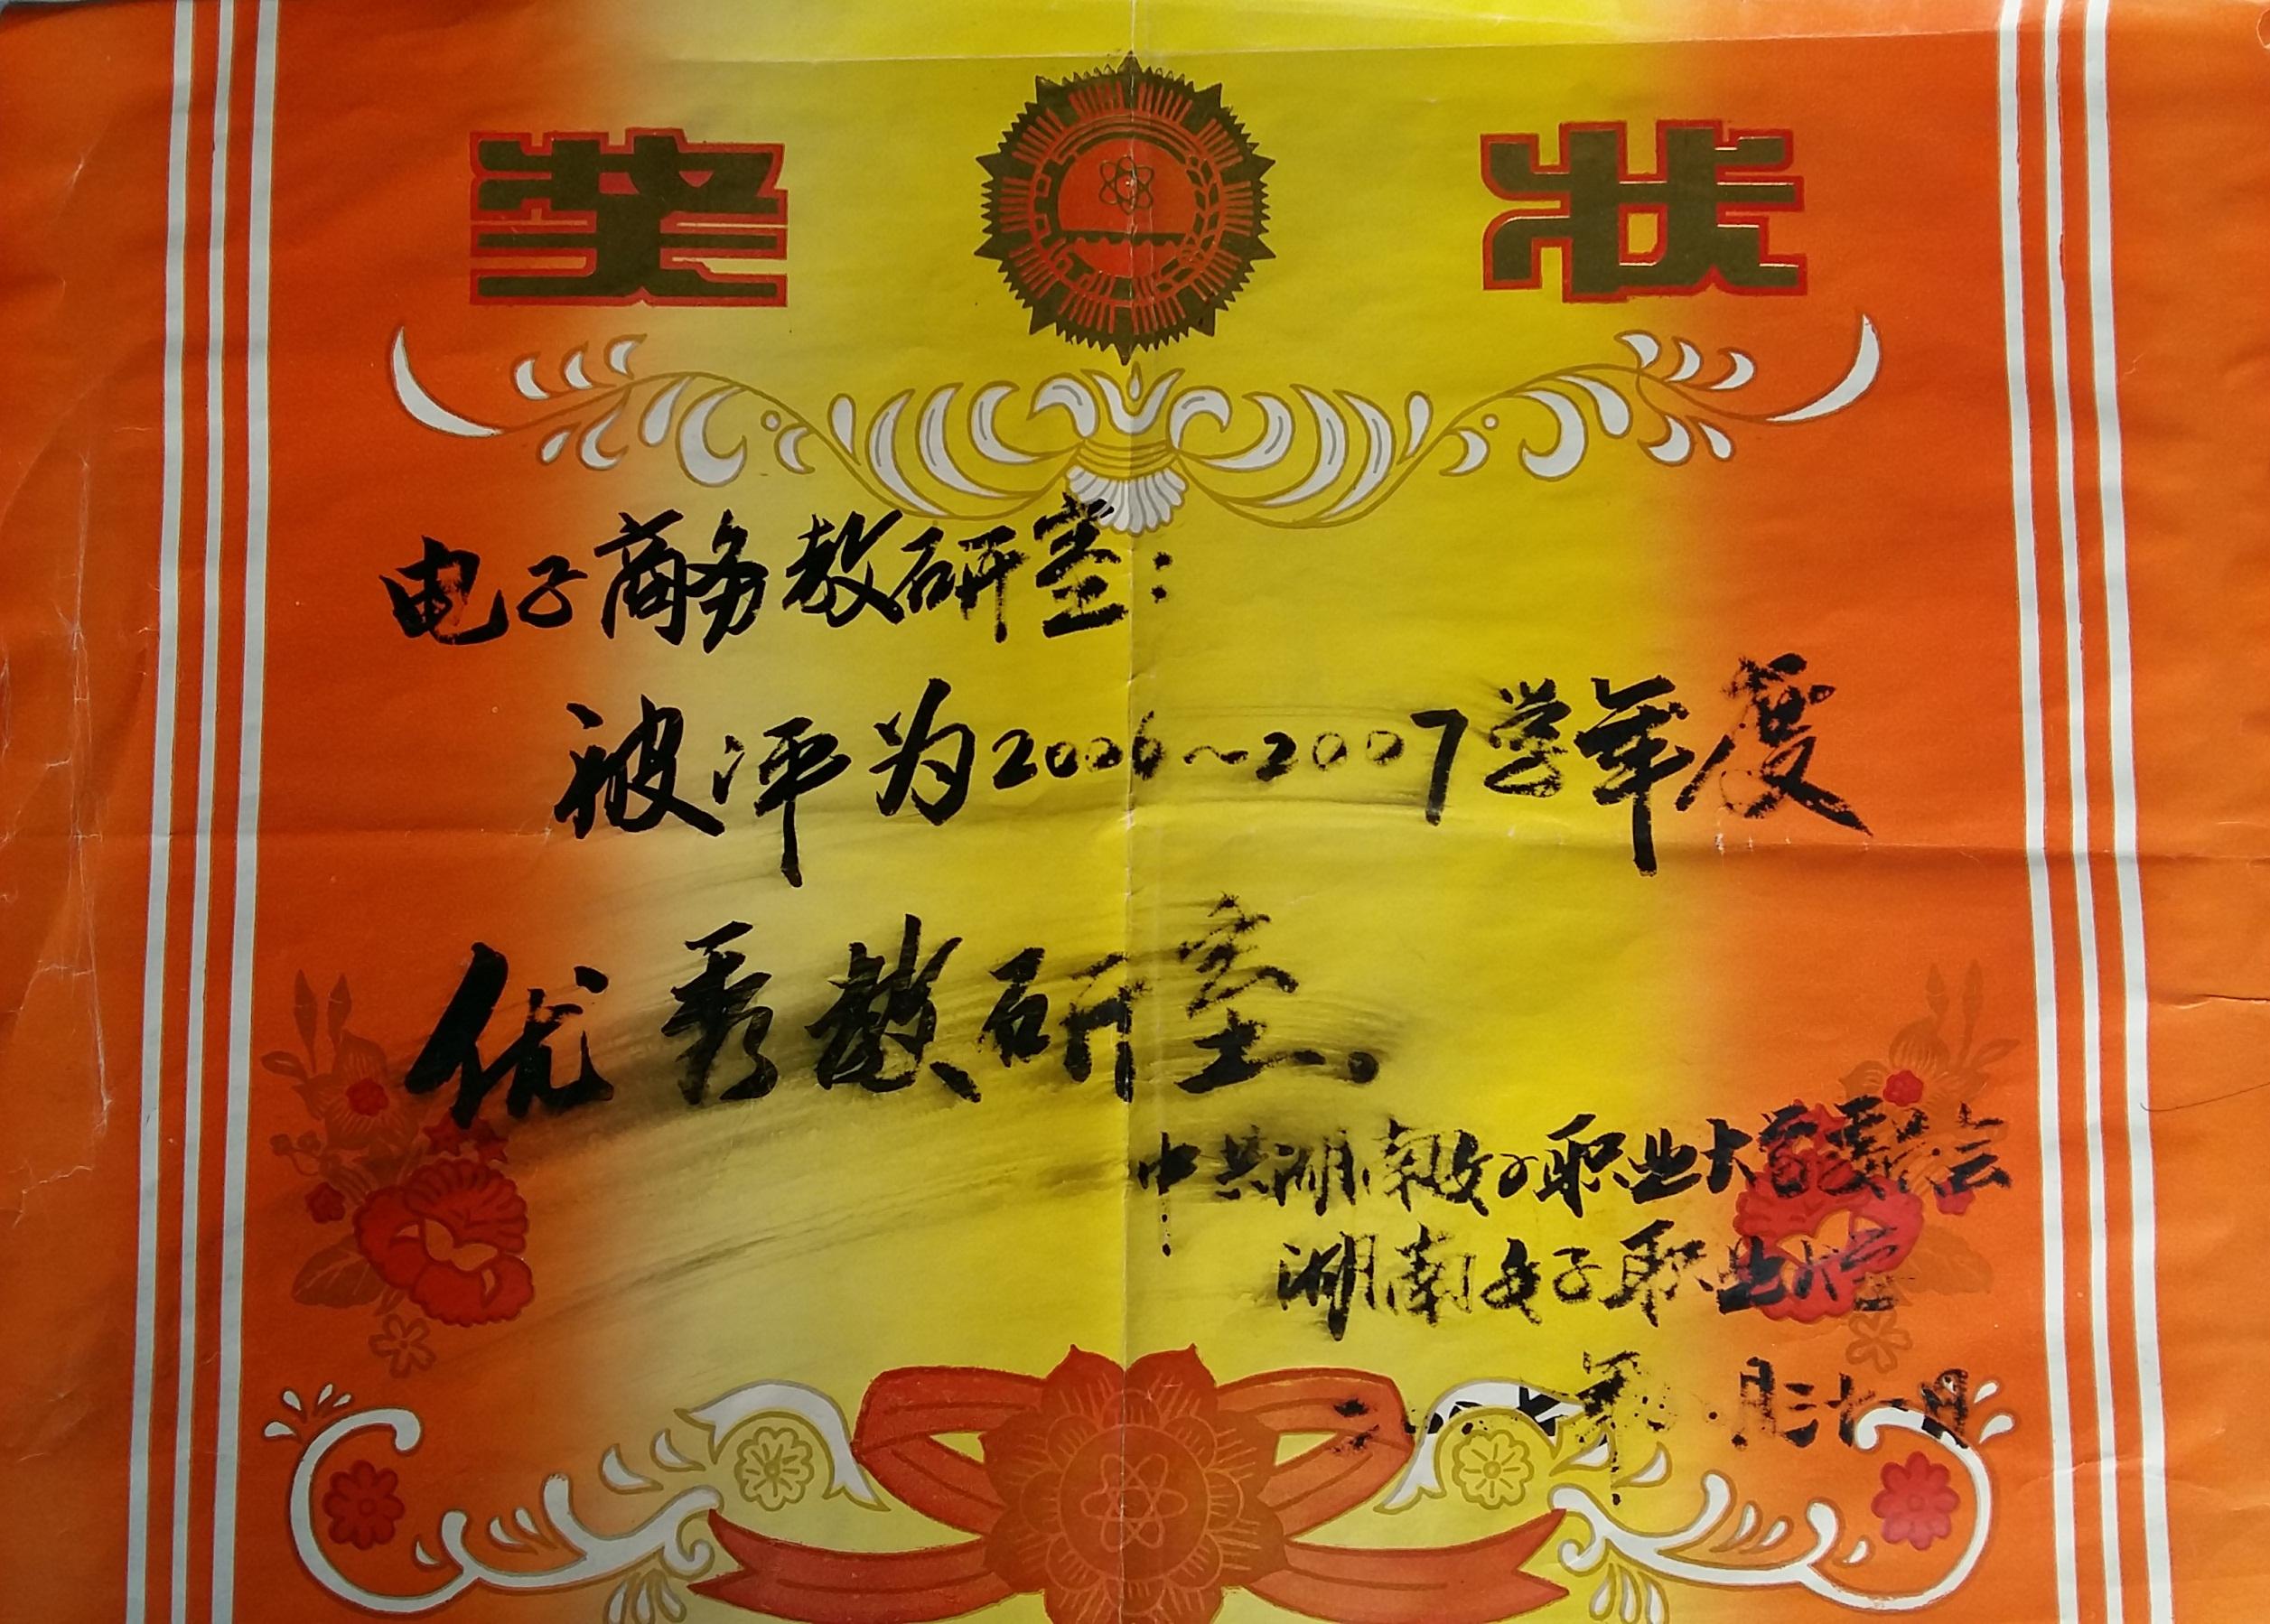 奖状
电子商务教研室：
被评为2006～2007学年度
优秀教研室。
中共湖南女子职业大学委员会
湖南女子职业大学
二〇〇七年 月三十一日